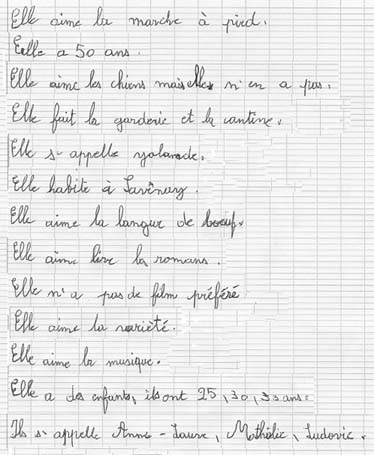 Elle aime la marche à pied.
Eelle a 50 ans.
Elle aime les chiens mais elles n'en a pas.
Elle fait la garderie et la cantine.
Elle s'appelle yolande.
Elle habite à Savenay.
Elle aime la langue de boeuf.
Elle aime lire les romans.
Elle n'a pas de film préféré
Elle aime la variété.
Elle aime la musique.
Elle a des enfants, ils ont 25, 30, 33 ans.
Ils s'appelle Anne-Laure, Ludovic.